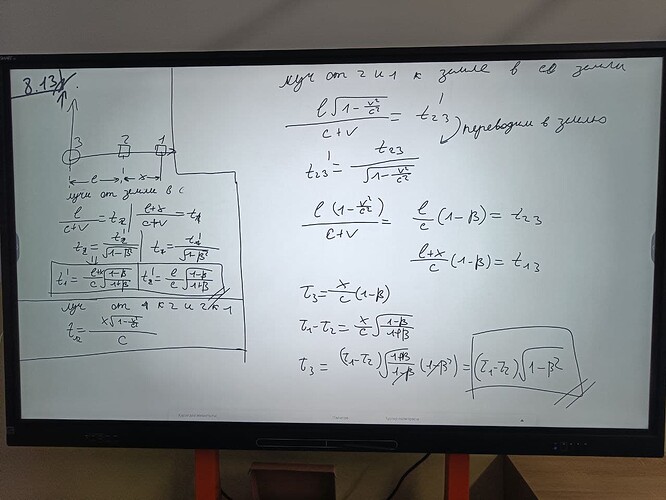 8.13
3 2 1
l x
лучи от земли в с
l/(c+v) = t₂ | (l+x)/(c+v) = t₁
t₂ = t₂'/√(1-β²) | t₁ = t₁'/√(1-β²)
t₁' = (l+x)/c √((1-β)/(1+β)) | t₂' = l/c √((1-β)/(1+β))
луч от 1 к 2 и 2 к 1
t₁₂ = x√(1-v²/c²)/c
луч от 2 и 1 к земле в со земли
l√(1-v²/c²)/(c+v) = t₂₃'
переводим в землю
t₂₃' = t₂₃/√(1-v²/c²)
l(1-v²/c²)/(c+v) = l/c (1-β) = t₂₃
(l+x)/c (1-β) = t₁₃
τ₃ = x/c (1-β)
τ₁-τ₂ = x/c √((1-β)/(1+β))
τ₃ = (τ₁-τ₂)√((1+β)/(1-β)) (1-β²) = (τ₁-τ₂)√(1-β²)